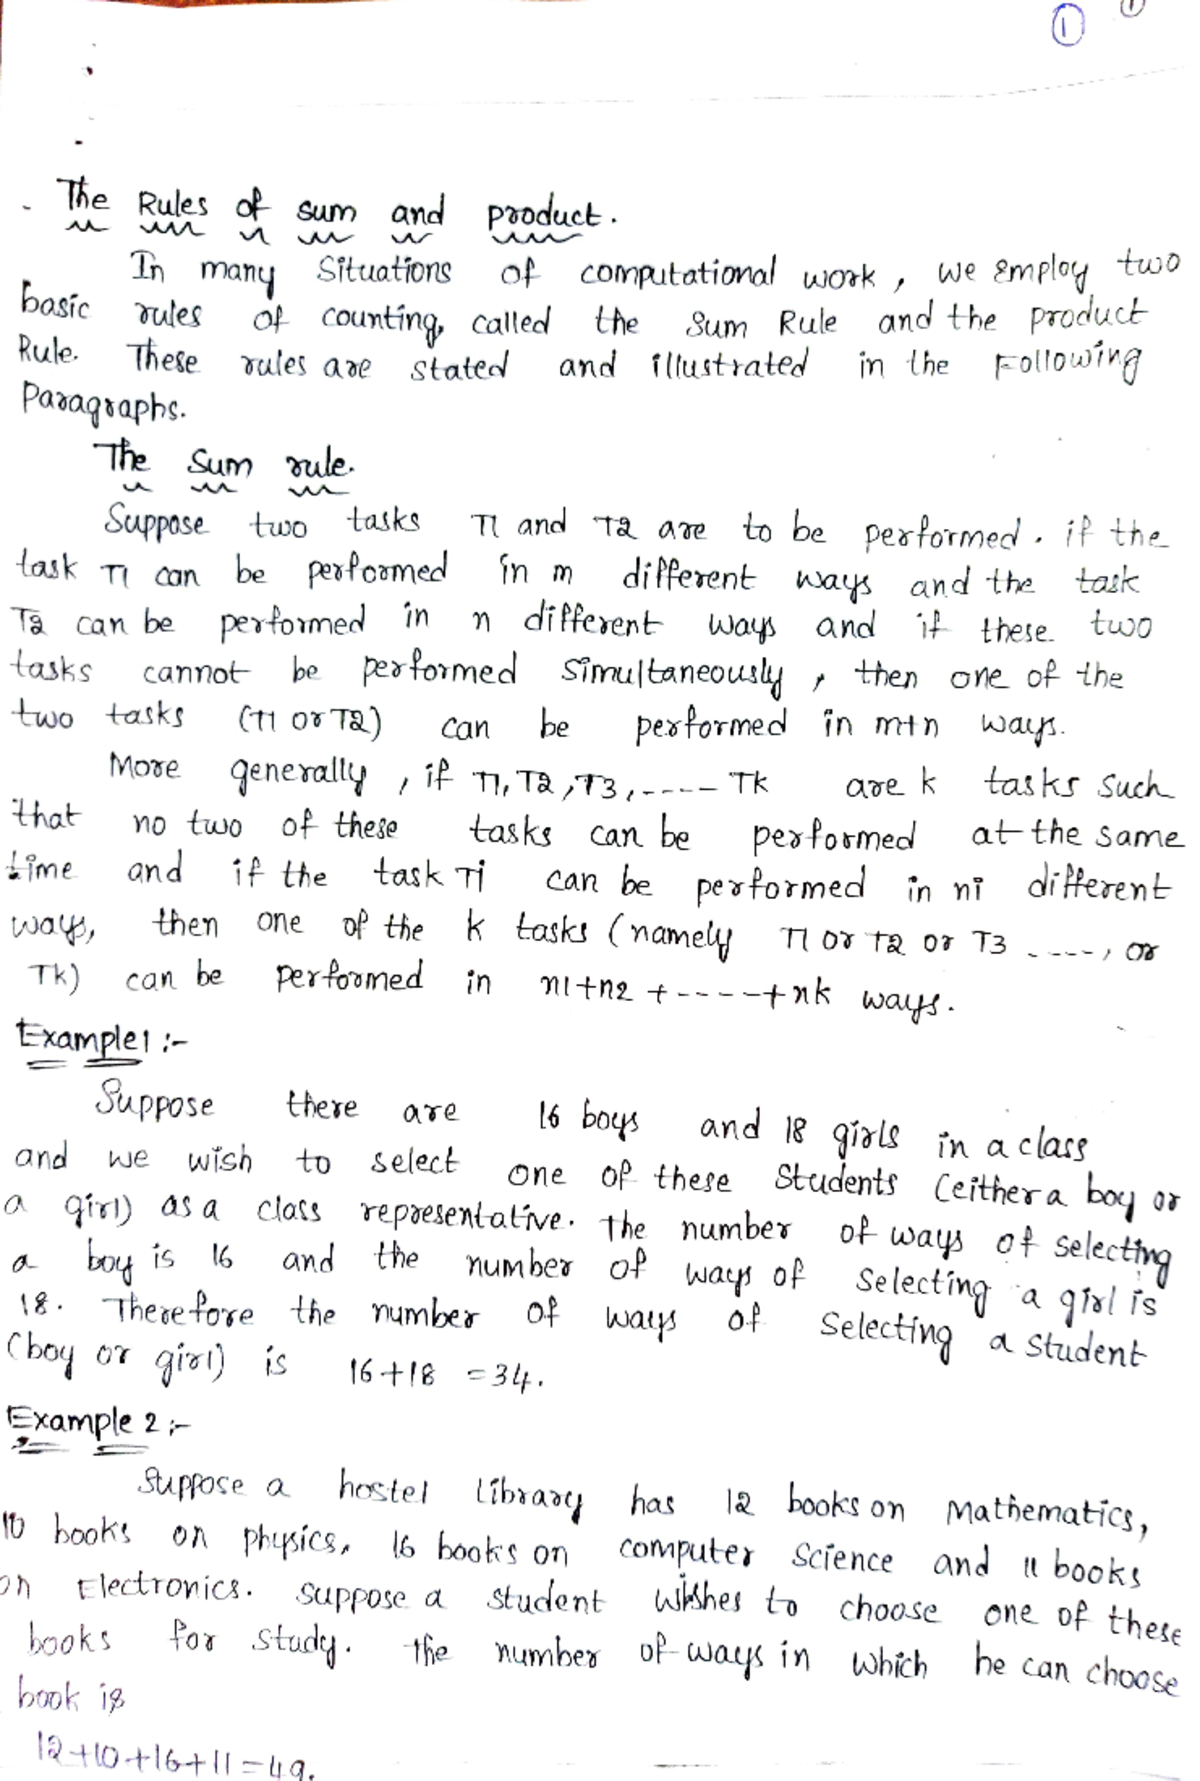 1
The Rules of sum and product.
In many Situations of computational work, we employ two
basic rules of counting, called the Sum Rule and the product
Rule. These rules are stated and illustrated in the Following
Paragraphs.
The Sum rule.
Suppose two tasks T1 and T2 are to be performed. if the
task T1 can be performed in m different ways and the task
T2 can be performed in n different ways and if these two
tasks cannot be performed Simultaneously, then one of the
two tasks (T1 or T2) can be performed in m+n ways.
More generally, if T1, T2, T3, ---- Tk are k tasks such
that no two of these tasks can be performed at the same
time and if the task Ti can be performed in ni different
ways, then one of the k tasks (namely T1 or T2 or T3 ----, or
Tk) can be performed in n1+n2 + ---- + nk ways.
Example1 :-
Suppose there are 16 boys and 18 girls in a class
and we wish to select one of these Students (either a boy or
a girl) as a class representative. The number of ways of selecting
a boy is 16 and the number of ways of Selecting a girl is
18. Therefore the number of ways of Selecting a Student
(boy or girl) is 16+18 = 34.
Example 2 :-
Suppose a hostel Library has 12 books on Mathematics,
10 books on physics, 16 books on computer Science and 11 books
on Electronics. Suppose a student wishes to choose one of these
books for study. The number of ways in which he can choose
book is
12+10+16+11=49.